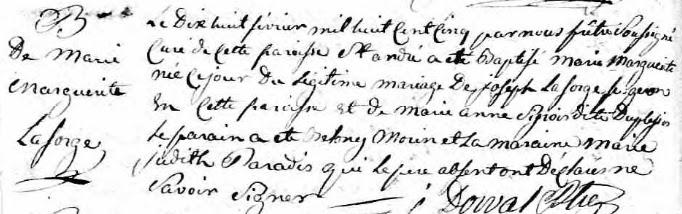 B
De Marie
Marguerite
Laforge
Le Dix huit février mil huit Cent Cinq par nous prêtre Soussigné
Curé de Cette paroisse St André a été Baptisé Marie Marguerite
née Ce jour Du Légitime mariage De joseph Laforge
En Cette paroisse et de Marie anne dite Duplessis
Le parain a été Morin et La maraine Marie
judith Paradis qui Le pere absent ont Déclaré ne
Savoir Signer Dorval Ptre